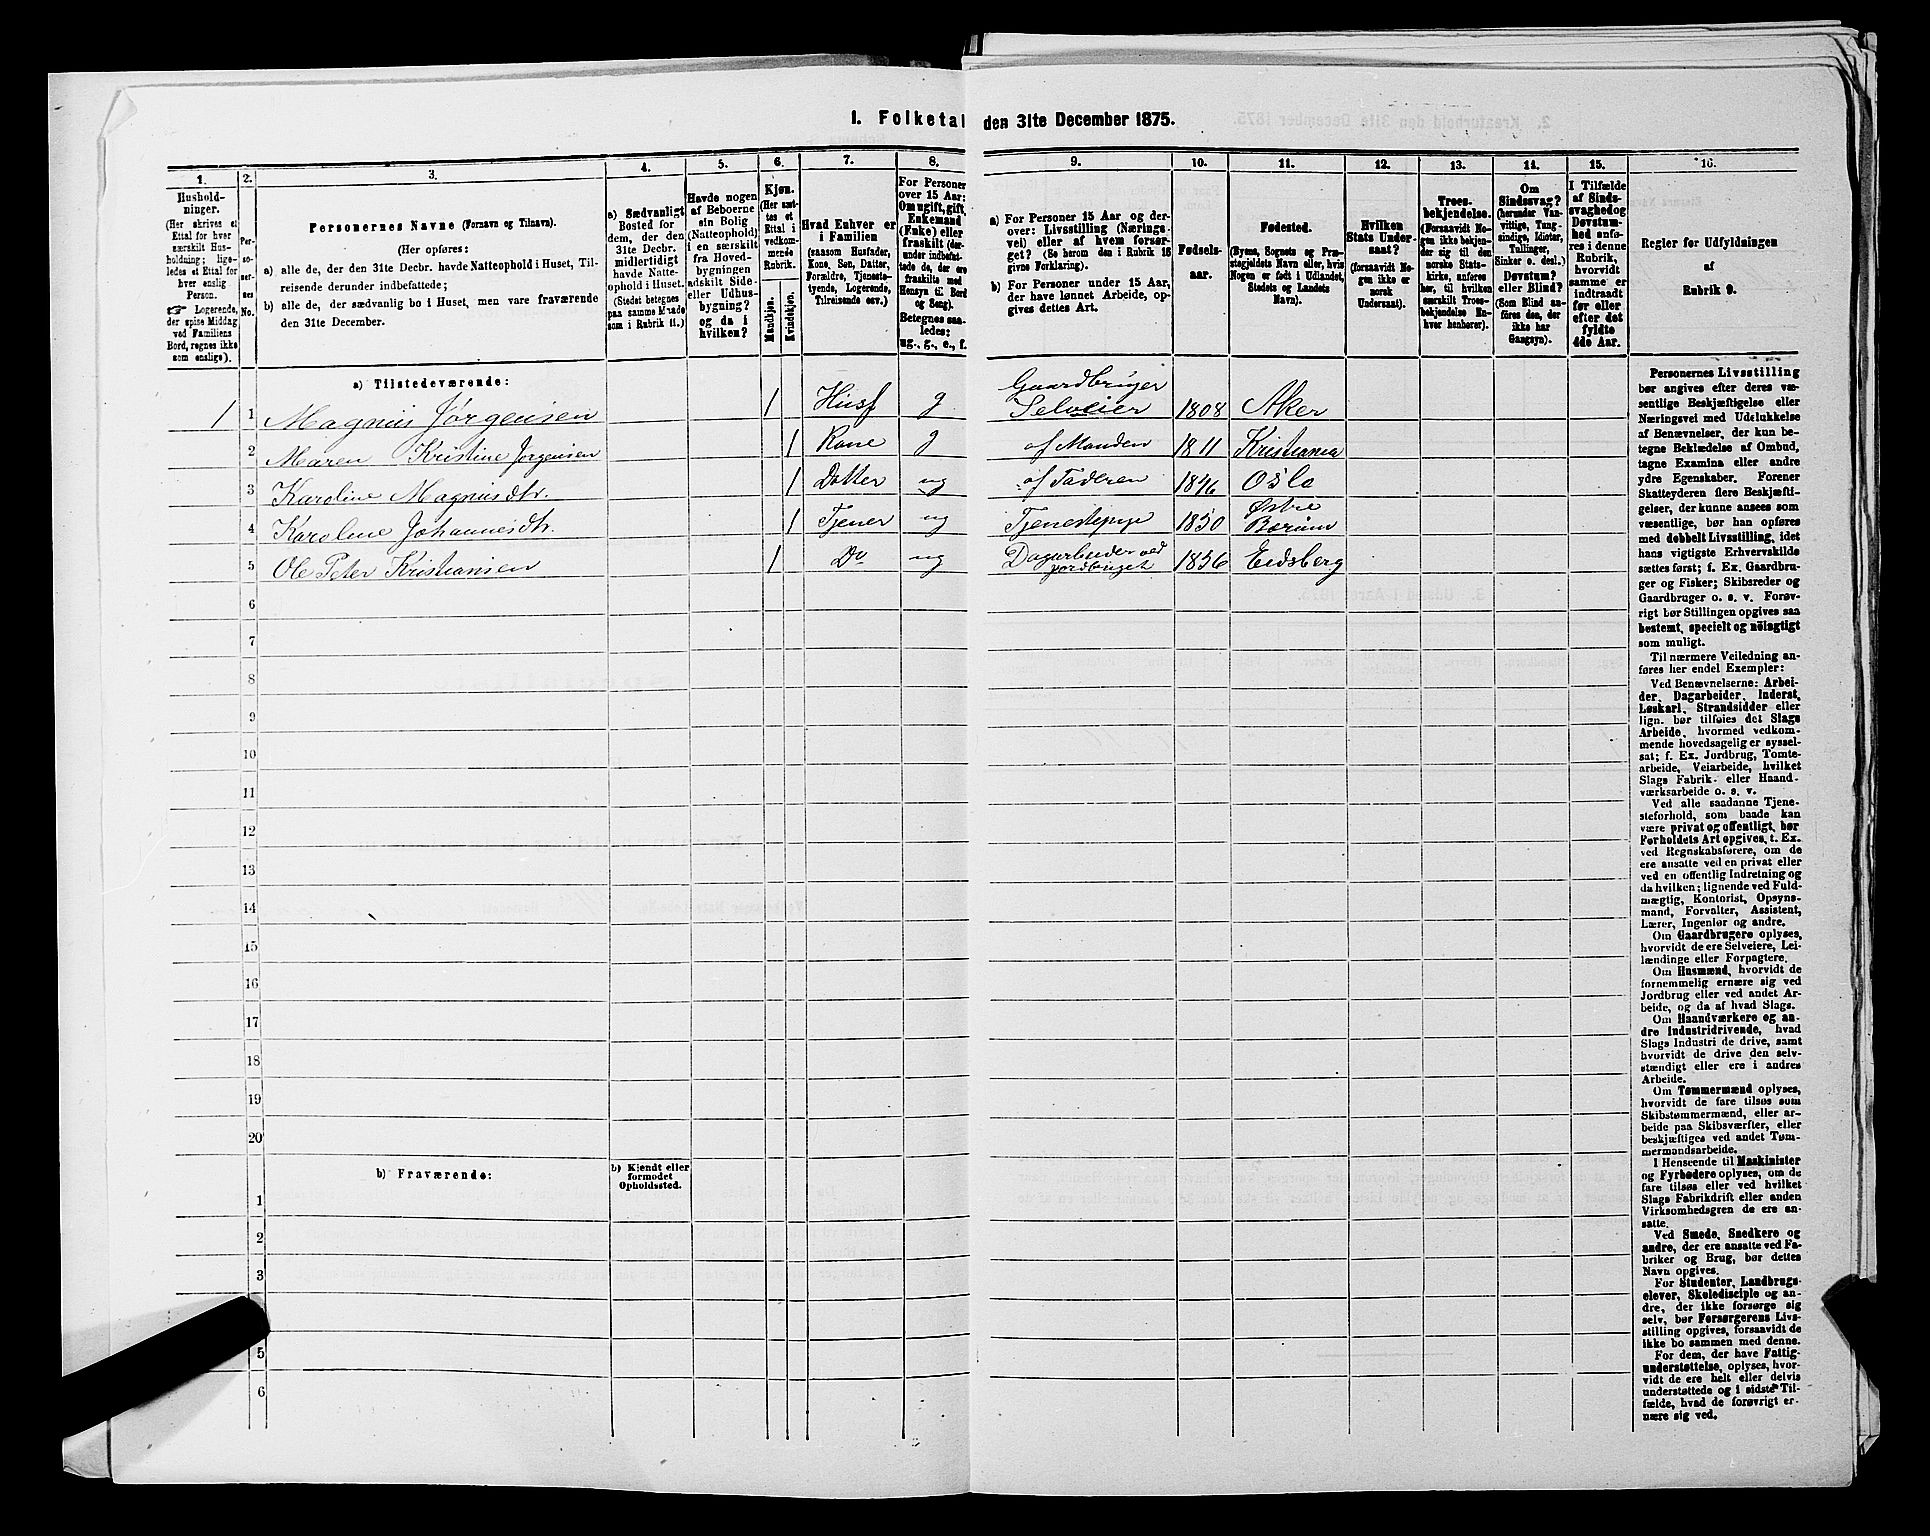 1. Folketal den 31te December 1875.
1. 2. 3. 4. 5. 6. 7. 8. 9. 10. 11. 12. 13. 14. 15. 16.
Hushold-
ninger.
(Her skrives et
Ettal for hver
særskilt Hus-
holdning; lige-
ledes et Ettal for
hver enslig
Person.
☞ Logerende,
der spise Middag
ved Familiens
Bord, regnes ikke
som enslige).
Per-
so-
ner-
nes
No.
Personernes Navne (Fornavn og Tilnavn).
(Her opføres:
a) alle de, der den 31te Decbr. havde Natteophold i Huset, Til-
reisende derunder indbefattede;
b) alle de, der sædvanlig bo i Huset, men vare fraværende
den 31te December.
a) Sædvanligt
Bosted for
dem, der den
31te Decbr.
midlertidigt
havde Natte-
ophold i Huset.
(Stedet betegnes
paa samme Maade
som i Rubrik 11.)
Havde nogen
af Beboerne
sin Bolig
(Natteophold)
i en særskilt
fra Hoved-
bygningen
adskilt Side-
eller Udhus-
bygning?
og da i
hvilken?
Kjøn.
(Her sæt-
tes et
Ettal i
vedkom-
mende
Rubrik.
Mandkjøn.
Kvindekjøn.
Hvad Enhver er
i Familien
(saasom Husfader,
Kone, Søn, Datter,
Forældre, Tjeneste-
tyende, Logerende,
Tilreisende osv.)
For Personer
over 15 Aar:
Om ugift, gift,
Enkemand
(Enke) eller
fraskilt (der-
under indbefat-
tede de, der ere
fraskilte med
Hensyn til Bord
og Seng).
Betegnes saa-
ledes:
ug., g., e., f.
a) For Personer 15 Aar og der-
over: Livsstilling (Nærings-
vei) eller af hvem forsør-
get? (Se herom den i Rubrik 16
givne Forklaring).
b) For Personer under 15 Aar,
der have lønnet Arbeide, op-
gives dettes Art.
Fødsels-
aar.
Fødested.
(Byens, Sognets og Præ-
stegjeldets Navn eller, hvis
Nogen er født i Udlandet,
Stedets og Landets
Navn).
Hvilken
Stats Under-
saat?
(forsaavidt No-
gen ikke er
norsk
Undersaat).
Troes-
bekjendelse.
(Forsaavidt No-
gen ikke bekjen-
der sig til den
norske Stats-
kirke, anføres
her, til hvilken
særskilt Troes-
bekjendelse En-
hver henhører).
Om
Sindssvag?
(herunder Van-
vittige, Tung-
sindige, Idioter,
Tullinger,
Sinker o. desl.).
Døvstum?
eller Blind?
(Som Blind an-
føres den, der
ikke har
Gangsyn).
I Tilfælde
af Sinds-
svaghed og
Døvstum-
hed anfø-
res i denne
Rubrik,
hvorvidt
samme er
indtraadt
før eller
efter det
fyldte
4de Aar.
Regler for Udfyldningen
af
Rubrik 9.
a) Tilstedeværende:
Gaardbruger
1 1 Magnus Jørgensen 1 Husf g Selveier 1808 Aker
2 Maren Kristine Jørgensen 1 Kone g af Manden 1811 Kristiania
3 Karoline Magnusdtr. 1 Datter ug af Faderen 1846 Oslo
Østre
4 Karoline Johannesdtr. 1 Tjener ug Tjenestepige 1850 Bærum
5 Ole Peter Kristiansen 1 Do ug Dagarbeider ved 1856 Eidsberg
Jordbruget
6
7
8
9
10
11
12
13
14
15
16
17
18
19
20
b) Fraværende:
b) Kjendt eller
formodet
Opholdssted.
1
2
3
5
6
Personernes Livsstilling
bør angives efter deres væ-
sentlige Beskjæftigelse eller
Næringsvei med Udelukkelse
af Benævnelser, der kun be-
tegne Beklædelse af Ombud,
tagne Examina eller andre
ydre Egenskaber. Forener
Skatteyderen flere Beskjæfti-
gelser, der kunne ansees som
væsentlige, bør han opføres
med dobbelt Livsstilling, idet
hans vigtigste Erhvervskilde
sættes først; f. Ex. Gaardbru-
ger og Fisker; Skibsreder og
Gaardbruger o. s. v. Forøv-
rigt bør Stillingen opgives saa
bestemt, specielt og nøiagtigt
som muligt.
Til nærmere Veiledning an-
føres her endel Exempler:
Ved Benævnelserne: Arbei-
der, Dagarbeider, Inderst,
Løskarl, Strandsidder eller
lign. bør tilføies det Slags
Arbeide, hvormed vedkom-
mende hovedsagelig er syssel-
sat; f. Ex. Jordbrug, Tomte-
arbeide, Veiarbeide, hvilket
Slags Fabrik- eller Haand-
værksarbeide o. s. v.
Ved alle saadanne Tjene-
steforhold, som baade kan
være privat og offentligt, bør
Forholdets Art opgives, t. Ex.
ved Regnskabsførere, om de
ere ansatte ved en privat eller
ved en offentlig Indretning og
da hvilken; lignende ved Fuld-
mægtig, Kontorist, Opsyns-
mand, Forvalter, Assistent,
Lærer, Ingeniør og andre.
Om Gaardbrugere oplyses,
hvorvidt de ere Selveiere, Lei-
lændinge eller Forpagtere.
Om Husmænd, hvorvidt de
fornemmelig ernære sig ved
Jordbrug eller ved andet Ar-
beide, og da af hvad Slags.
Om Haandværkere og an-
dre Industridrivende, hvad
Slags Industri de drive, samt
hvorvidt de drive den selv-
stændigt eller ere i andres
Arbeide.
Om Tømmermænd oplyses,
hvorvidt de fare tilsøs som
Skibstømmermænd, eller ar-
beide paa Skibsværfter, eller
beskjæftiges ved andet Tøm-
mermandsarbeide.
I Henseende til Maskinister
og Fyrbødere oplyses, om de
fare tilsøs eller ved hvilket
Slags Fabrikdrift eller anden
Virksomhedsgren de ere an-
satte.
Ved Smede, Snedkere og
andre, der ere ansatte ved Fa-
briker og Brug, bør dettes
Navn opgives.
For Studenter, Landbrugs-
elever, Skoledisciple og an-
dre, der ikke forsørge sig
selv, bør Forsørgerens Livs-
stilling opgives, forsaavidt de
ikke bo sammen med denne.
For dem, der have Fattig-
understøttelse, oplyses, hvor-
vidt de ere helt eller delvis
understøttede og i sidste Til-
fælde, hvad de forøvrigt er-
nære sig ved.